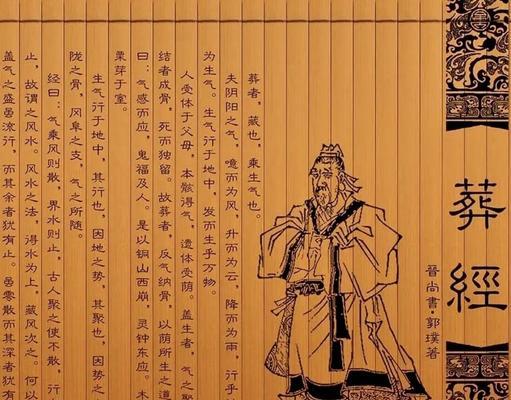 葬經
晉尚書·郭璞著
葬者，藏也，乘生气也。
夫阴阳之气，噫而为风，升而为云，降而为雨，行乎
为生气。生气行于地中，发而生乎万物。
人受体于父母，本骸得气，遗体受荫。盖生者，气之聚
结者成骨，死而独留。故葬者，反气纳骨，以荫所生之道
曰：气感而应，鬼福及人。是以铜山西崩，灵钟东应。木
栗芽于室。
生气行于地中，其行也，因地之势，其聚也，因势之
陇之骨，风阜之支，气之所随。
经曰：气乘风则散，界水则止，古人聚之使不散，行
止，故谓之风水。风水之法，得水为上，藏风次之。何以
盖气之盛虽流行，而其余者犹有止。虽零散而其深者犹有